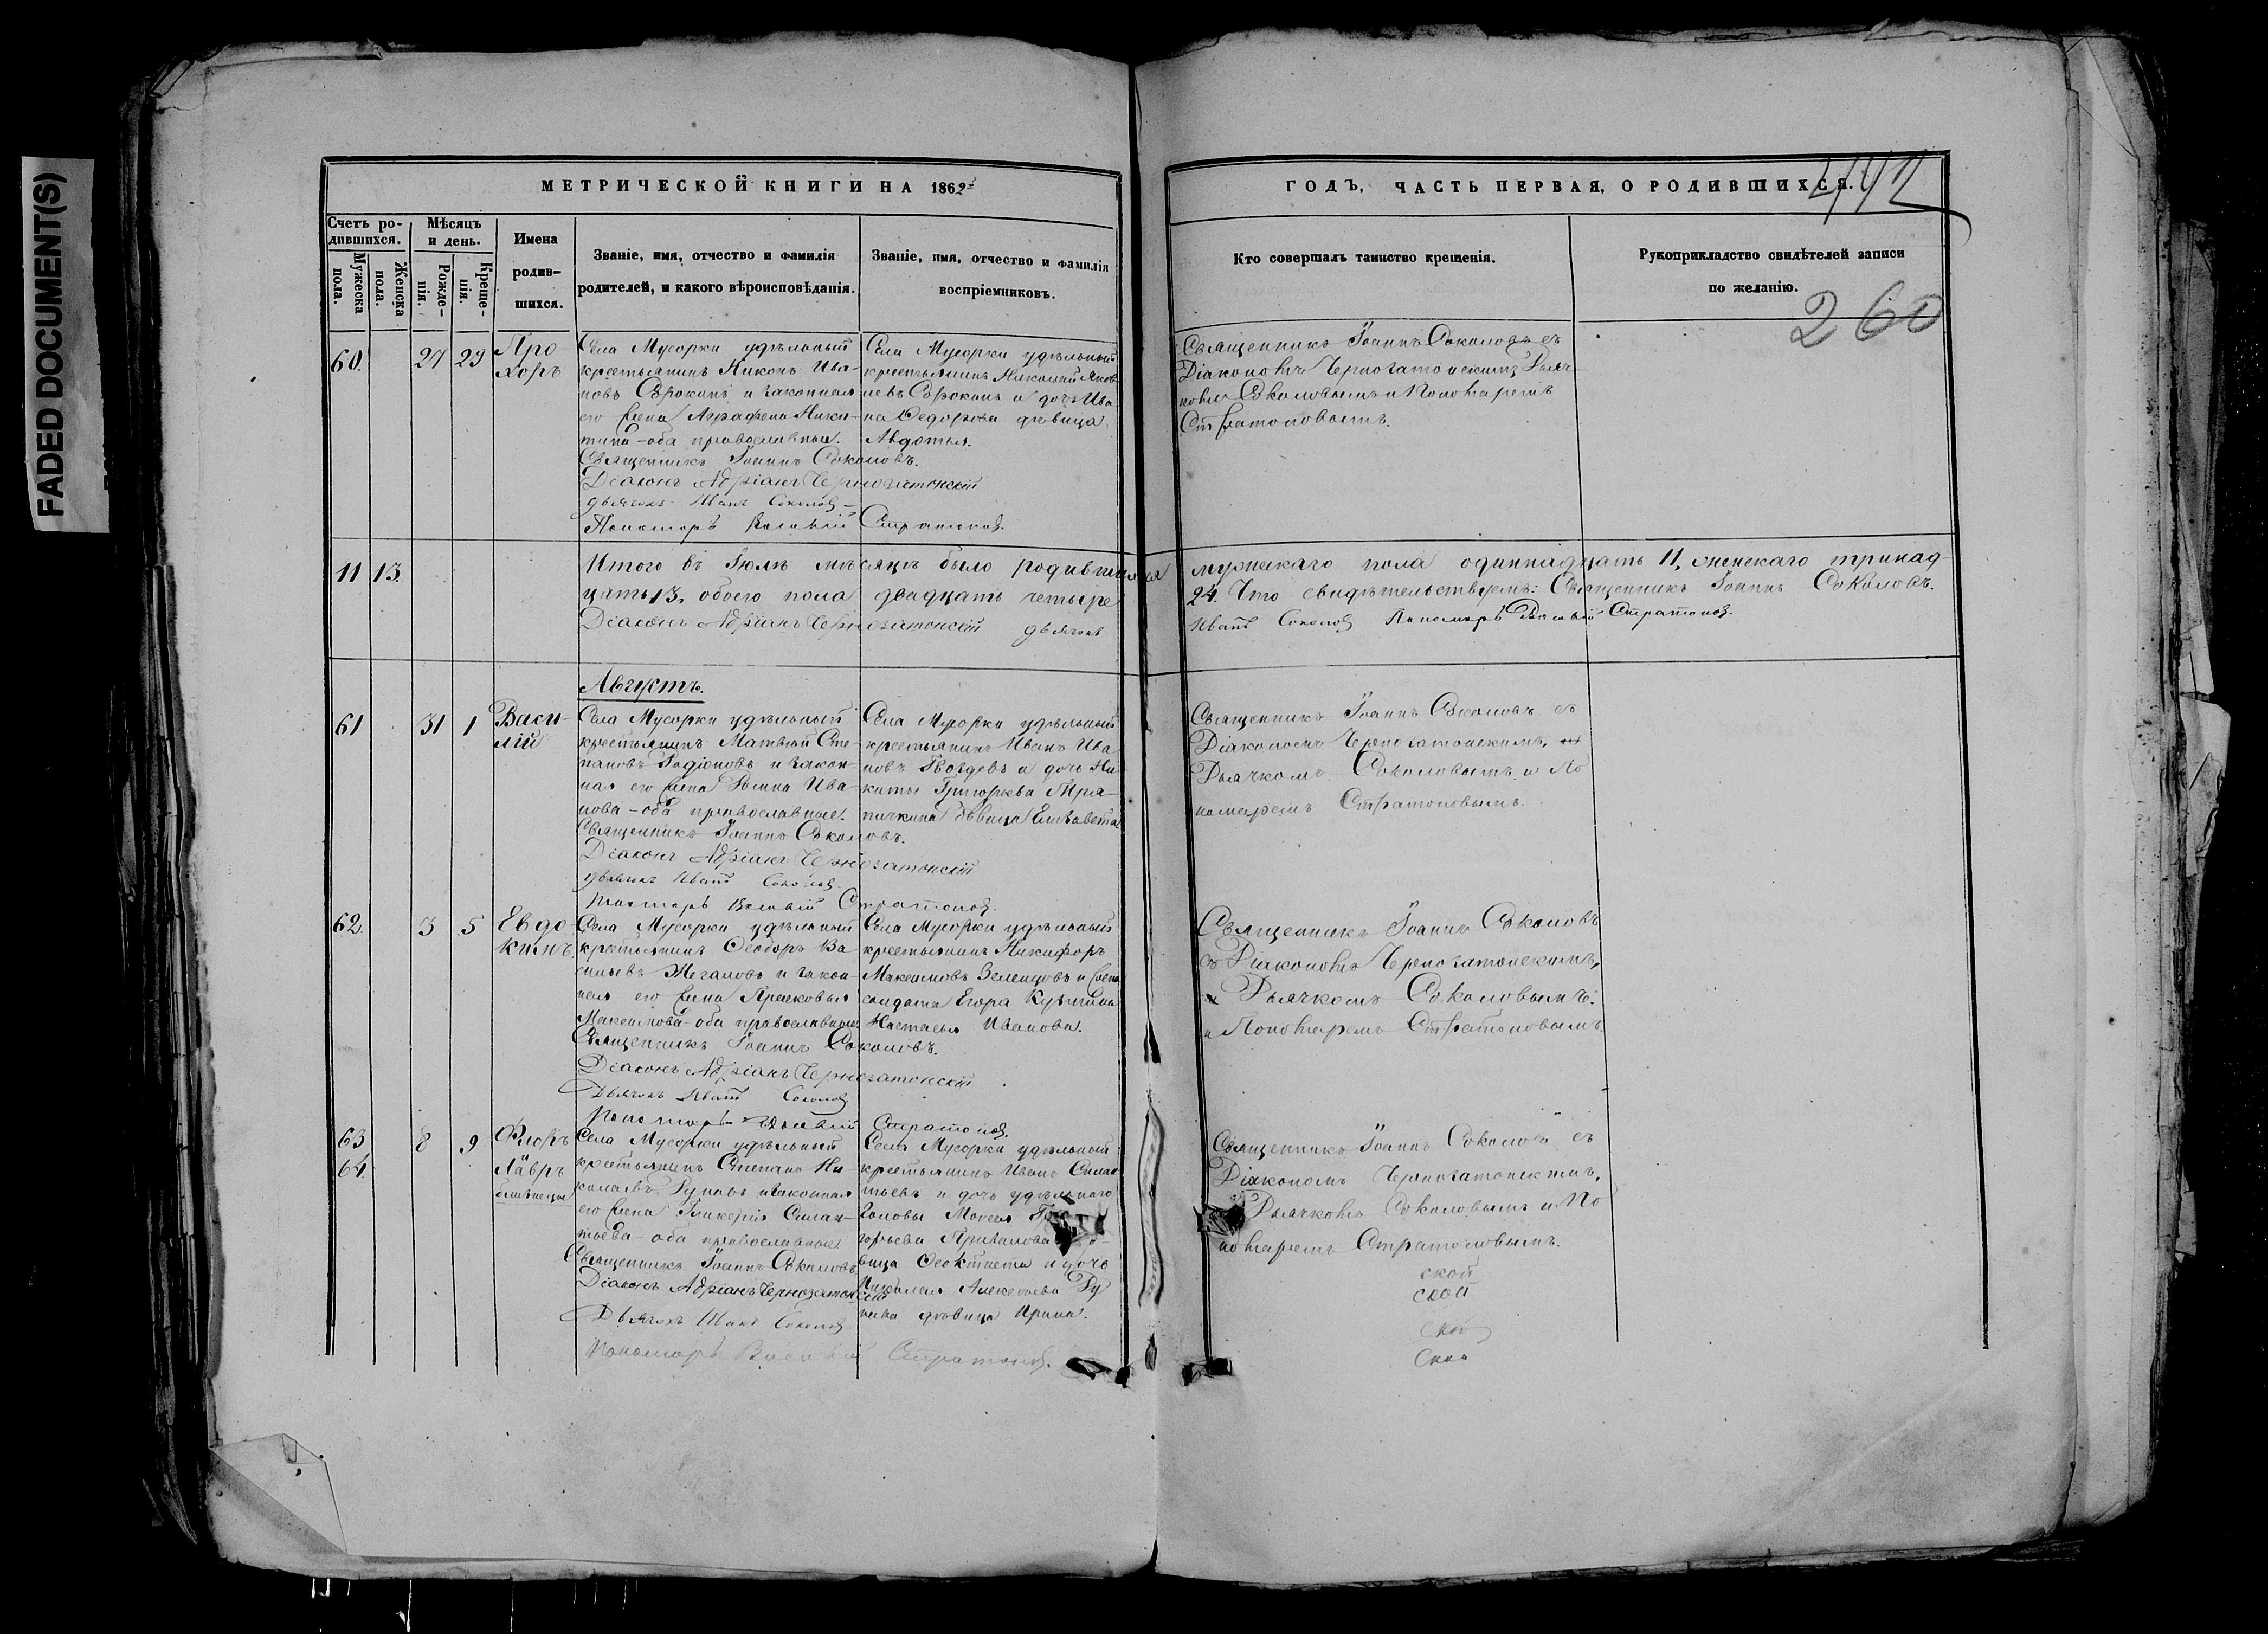 FADED DOCUMENT(S)
МЕТРИЧЕСКОЙ КНИГИ НА 1862
ГОДЪ, ЧАСТЬ ПЕРВАЯ, О РОДИВШИХСЯ.
260
Счетъ ро-
дившихся.
Мужеска
пола.
Женска
пола.
Мѣсяцъ
и день.
Рожде-
нія.
Креще-
нія.
Имена
родив-
шихся.
Званіе, имя, отчество и фамилія
родителей, и какого вѣроисповѣданія.
Званіе, имя, отчество и фамилія
воспріемниковъ.
Кто совершалъ таинство крещенія.
Рукоприкладство свидѣтелей записи
по желанію.
60.
27
29
Про
хоръ
Села Мусорки удѣльный
крестьянинъ Никонъ Ива-
новъ Сорокинъ и законная
его жена Аграфена Ники-
тина - оба православные.
Священникъ Іоаннъ Соколовъ.
Діаконъ Адріанъ Чернозатонскій
дьячокъ Иванъ Соколов
Пономарь Стратонов.
Села Мусорки удѣльный
крестьянинъ Николай Яков
левъ Сорокинъ и дочь Ива
на Федорова дѣвица
Авдотья.
Священникъ Іоаннъ Соколовъ съ
Діакономъ Чернозатонскимъ Дьяч-
комъ Соколовымъ и Пономаремъ
Стратоновымъ.
11
13.
Итого въ Іюлѣ мѣсяцѣ было родившихся мужескаго пола одиннадцать 11, женскаго тринад-
цать 13, обоего пола двадцать четыре 24. Что свидѣтельствуемъ: Священникъ Іоаннъ Соколовъ.
Діаконъ Адріанъ Чернозатонскій дьячокъ Иванъ Соколов Пономарь Стратонов.
Августъ.
61
31
1
Васи-
лій
Села Мусорки удѣльный
крестьянинъ Матвѣй Сте-
пановъ Родіоновъ и закон-
ная его жена Ива-
нова - оба православные.
Священникъ Іоаннъ Соколовъ.
Діаконъ Адріанъ Чернозатонскій
дьячокъ Иванъ Соколов
Пономарь Стратонов.
Села Мусорки удѣльный
крестьянинъ Иванъ Ива
новъ Гвоздевъ и дочь Ни
киты Григорьева Мря-
дѣвица Елизавета
Священникъ Іоаннъ Соколовъ съ
Діакономъ Чернозатонскимъ,
Дьячкомъ Соколовымъ и По
номаремъ Стратоновымъ.
62.
3
5
Евдо-
кимъ.
Села Мусорки удѣльный
крестьянинъ Ѳеодоръ Ва-
сильевъ Жегаловъ и закон-
ная его жена
Максимова - оба православные
Священникъ Іоаннъ Соколовъ.
Діаконъ Адріанъ Чернозатонскій
Дьячокъ Иванъ Соколов
Пономарь Стратонов.
Села Мусорки удѣльный
крестьянинъ Никифоръ
Максимовъ Зеленцовъ и жена
солдата Егора
Настасья Иванова.
Священникъ Іоаннъ Соколовъ
съ Діакономъ Чернозатонскимъ,
Дьячкомъ Соколовымъ
и Пономаремъ Стратоновымъ
63
64.
8
9
Флоръ
Лавръ
близнецы
Села Мусорки удѣльный
крестьянинъ Степанъ Ни-
колаевъ Руновъ и законная
его жена Гликерія Силан-
тьева - оба православные
Священникъ Іоаннъ Соколовъ
Діаконъ Адріанъ Чернозатонскій
Дьячокъ Иванъ Соколов
Пономарь Стратонов.
Села Мусорки удѣльный
крестьянинъ Иванъ Силан
тьевъ и дочь удѣльнаго
Головы Моисея
горьева
вица Ѳеоктиста и дочь
Николая Алексѣева Ру
нова дѣвица Ирина.
Священникъ Іоаннъ Соколовъ съ
Діакономъ Чернозатонскимъ,
Дьячкомъ Соколовымъ и По
номаремъ Стратоновымъ.
ской
ской